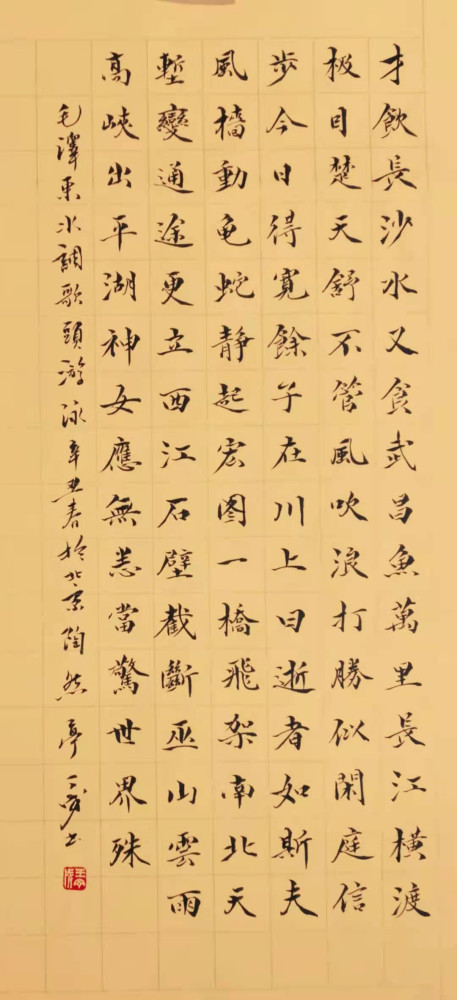 才飲長沙水又食武昌魚萬里長江橫渡
极目楚天舒不管風吹浪打勝似閑庭信
步今日得寬餘子在川上曰逝者如斯夫
風檣動龟蛇静起宏图一橋飛架南北天
塹變通途更立西江石壁截斷巫山雲雨
高峽出平湖神女應無恙當驚世界殊
毛澤東水調歌頭游泳辛丑春於北京陶然亭